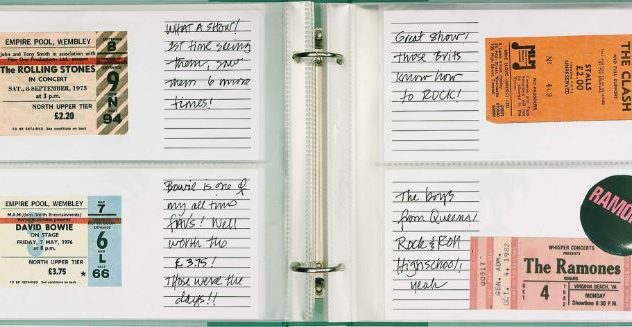 EMPIRE POOL, WEMBLEY
THE ROLLING STONES
IN CONCERT
SAT., 8 SEPTEMBER, 1973
at 3 p.m.
NORTH UPPER TIER
£2.20
TO BE RETAINED. See conditions on back
8
9
N
94
WHAT A SHOW!
1st time seeing
them, saw
them 6 more
times!
Great show!
Those Brits
know how
to ROCK!
STALLS
£2.00
THE CLASH
EMPIRE POOL, WEMBLEY
DAVID BOWIE
ON STAGE
FRIDAY, 7 MAY, 1976
at 8 p.m.
NORTH UPPER TIER
£3.75
TO BE RETAINED. See conditions on back
7
6
L
66
Bowie is one of
my all time
favs! Well
worth the
£3.75!
Those were the
days!!
The boys
from Queens!
Rock & Roll
Highschool,
yeah
RAMO
GEN. ADM.
OCT. 4, 1982
WHISPER CONCERTS
PRESENTS
The Ramones
4
VIRGINIA BEACH, VA
MONDAY
Showtime 8:30 P.M.